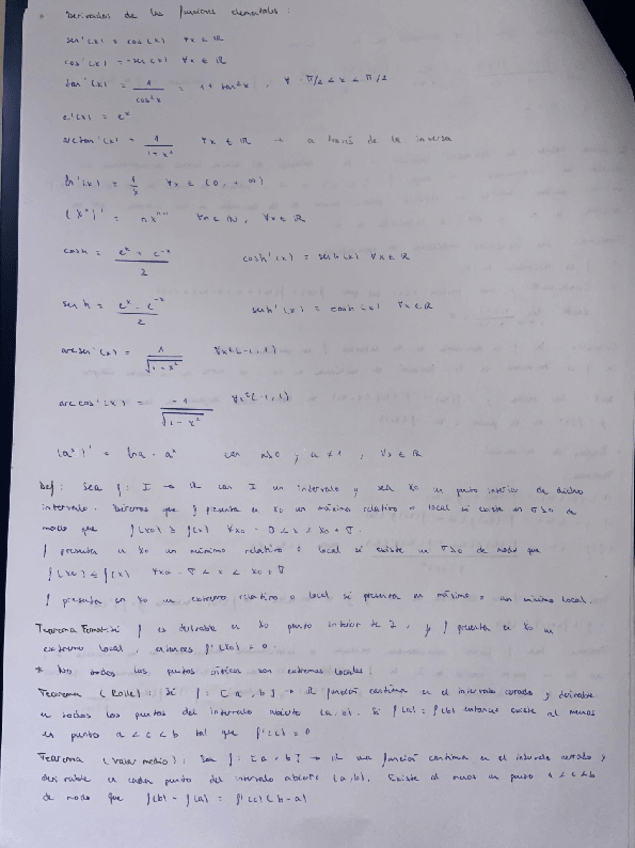 * Derivadas de las funciones elementales :
sen'(x) = cos(x) ∀x ∈ ℝ
cos'(x) = -sen(x) ∀x ∈ ℝ
tan'(x) = 1/cos²x = 1 + tan²x , ∀ -π/2 < x < π/2
e'(x) = eˣ
arctan'(x) = 1/(1+x²) ∀x ∈ ℝ → a través de la inversa
ln'(x) = 1/x ∀x ∈ (0, +∞)
(xⁿ)' = nxⁿ⁻¹ ∀n ∈ ℕ, ∀x ∈ ℝ
cosh = (eˣ + e⁻ˣ)/2 cosh'(x) = senh(x) ∀x ∈ ℝ
senh = (eˣ - e⁻ˣ)/2 senh'(x) = cosh(x) ∀x ∈ ℝ
arcsen'(x) = 1/√(1-x²) ∀x ∈ (-1,1)
arccos'(x) = -1/√(1-x²) ∀x ∈ (-1,1)
(aˣ)' = ln a · aˣ con a>0 ; a ≠ 1 , ∀x ∈ ℝ
Def: Sea f: I → ℝ con I un intervalo y sea x₀ un punto interior de dicho
intervalo. Diremos que f presenta en x₀ un máximo relativo o local si existe un δ>0 de
modo que f(x₀) ≥ f(x) ∀x₀ - δ < x < x₀ + δ.
f presenta en x₀ un mínimo relativo o local si existe un δ>0 de modo que
f(x₀) ≤ f(x) ∀x₀ - δ < x < x₀ + δ
f presenta en x₀ un extremo relativo o local si presenta un máximo o un mínimo local.
Teorema Fermat: Si f es derivable en x₀ punto interior de I, y f presenta en x₀ un
extremo local, entonces f'(x₀) = 0.
* No todos los puntos críticos son extremos locales!
Teorema (Rolle): Si f: [a,b] → ℝ función continua en el intervalo cerrado y derivable
en todos los puntos del intervalo abierto (a,b). Si f(a) = f(b) entonces existe al menos
un punto a < c < b tal que f'(c) = 0
Teorema (Valor medio): Sea f: [a,b] → ℝ una función continua en el intervalo cerrado y
derivable en cada punto del intervalo abierto (a,b). Existe al menos un punto a < c < b
de modo que f(b) - f(a) = f'(c)(b-a)